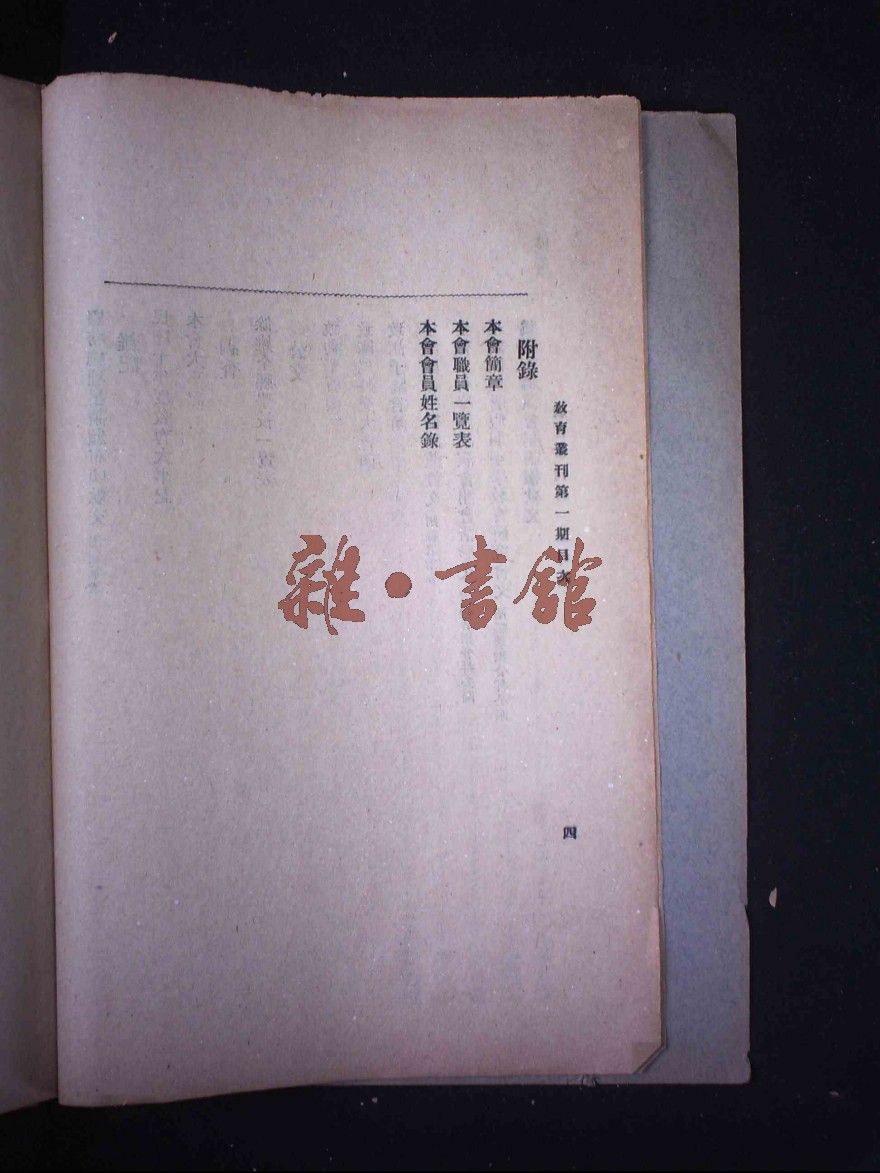 教育叢刊第一期目次
四
附錄
本會簡章
本會職員一覽表
本會會員姓名錄
雜·書館